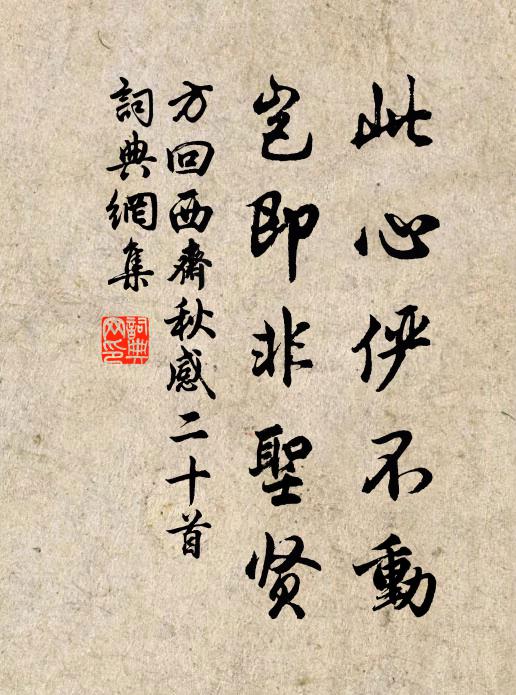 此心俨不動
岂即非聖贤
方回西齋秋感二十首
詞典網集
詞典網印